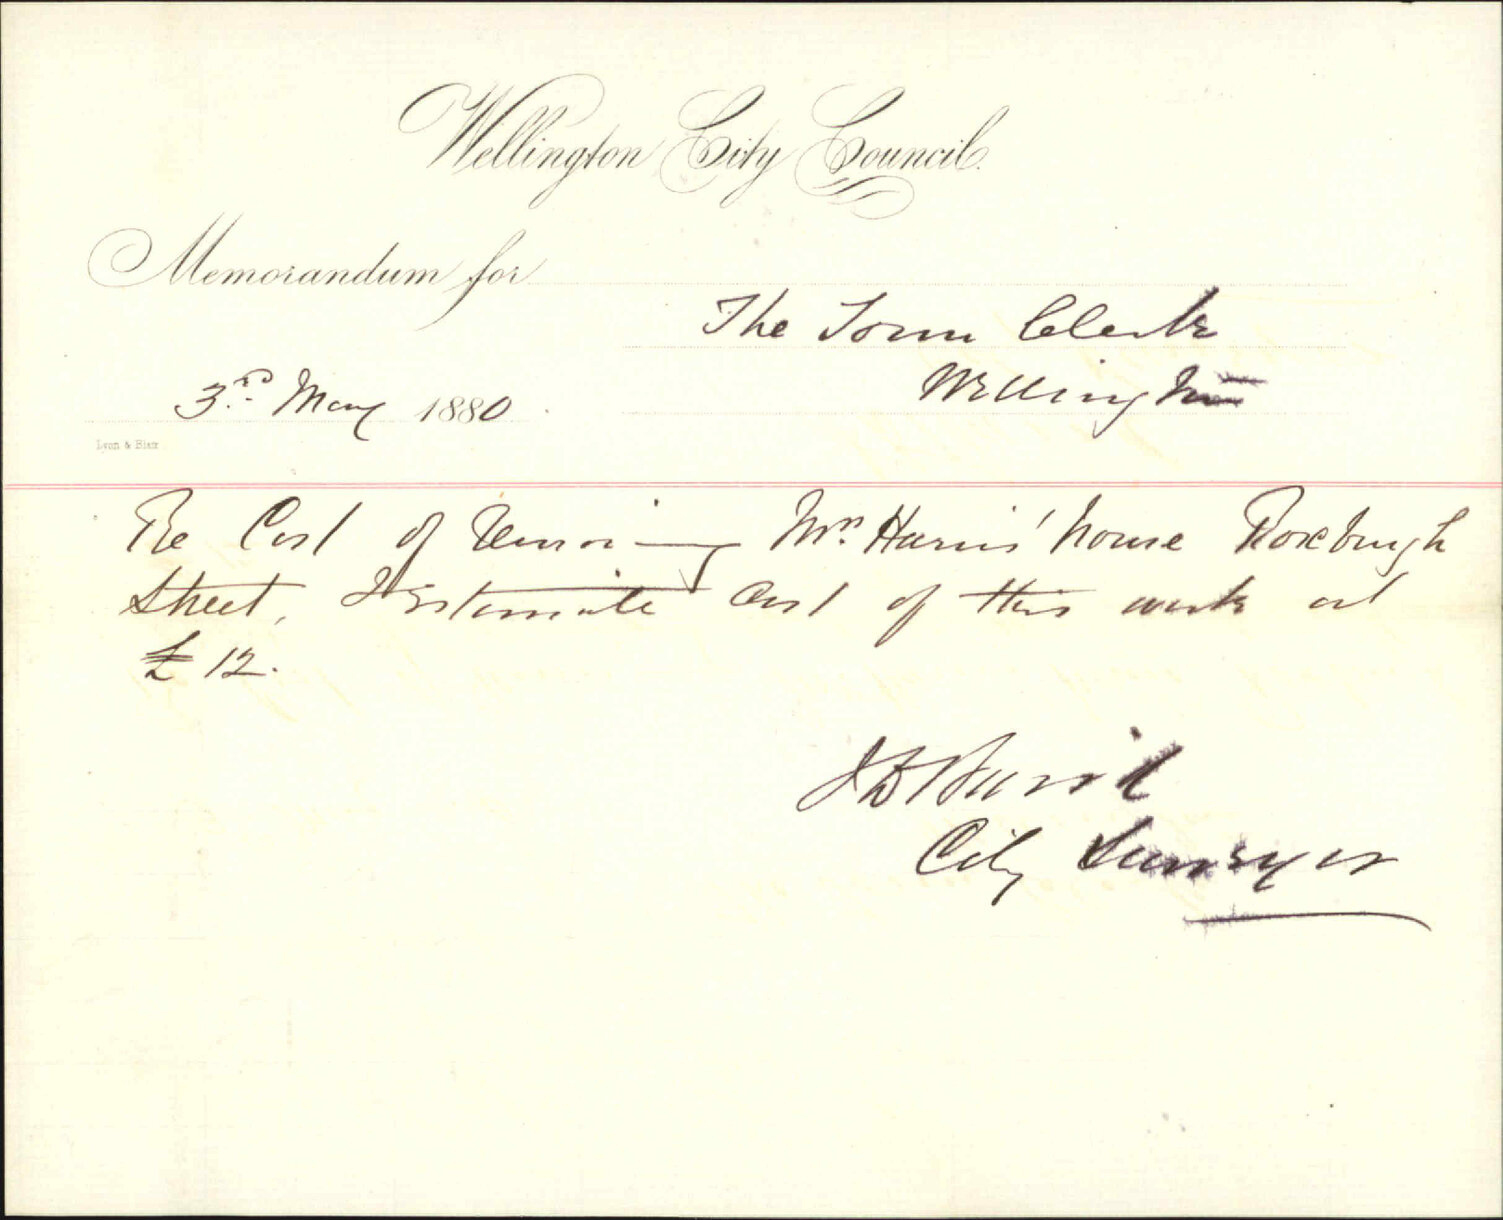 Wellington City Council.
Memorandum for
The Town Clerk
Wellington
3rd. May 1880.
Lyon & Blair
Re Cost of removing Mrs. Harris' house Roxburgh
Street, I Estimate Cost of this work at
£12.
City Surveyor